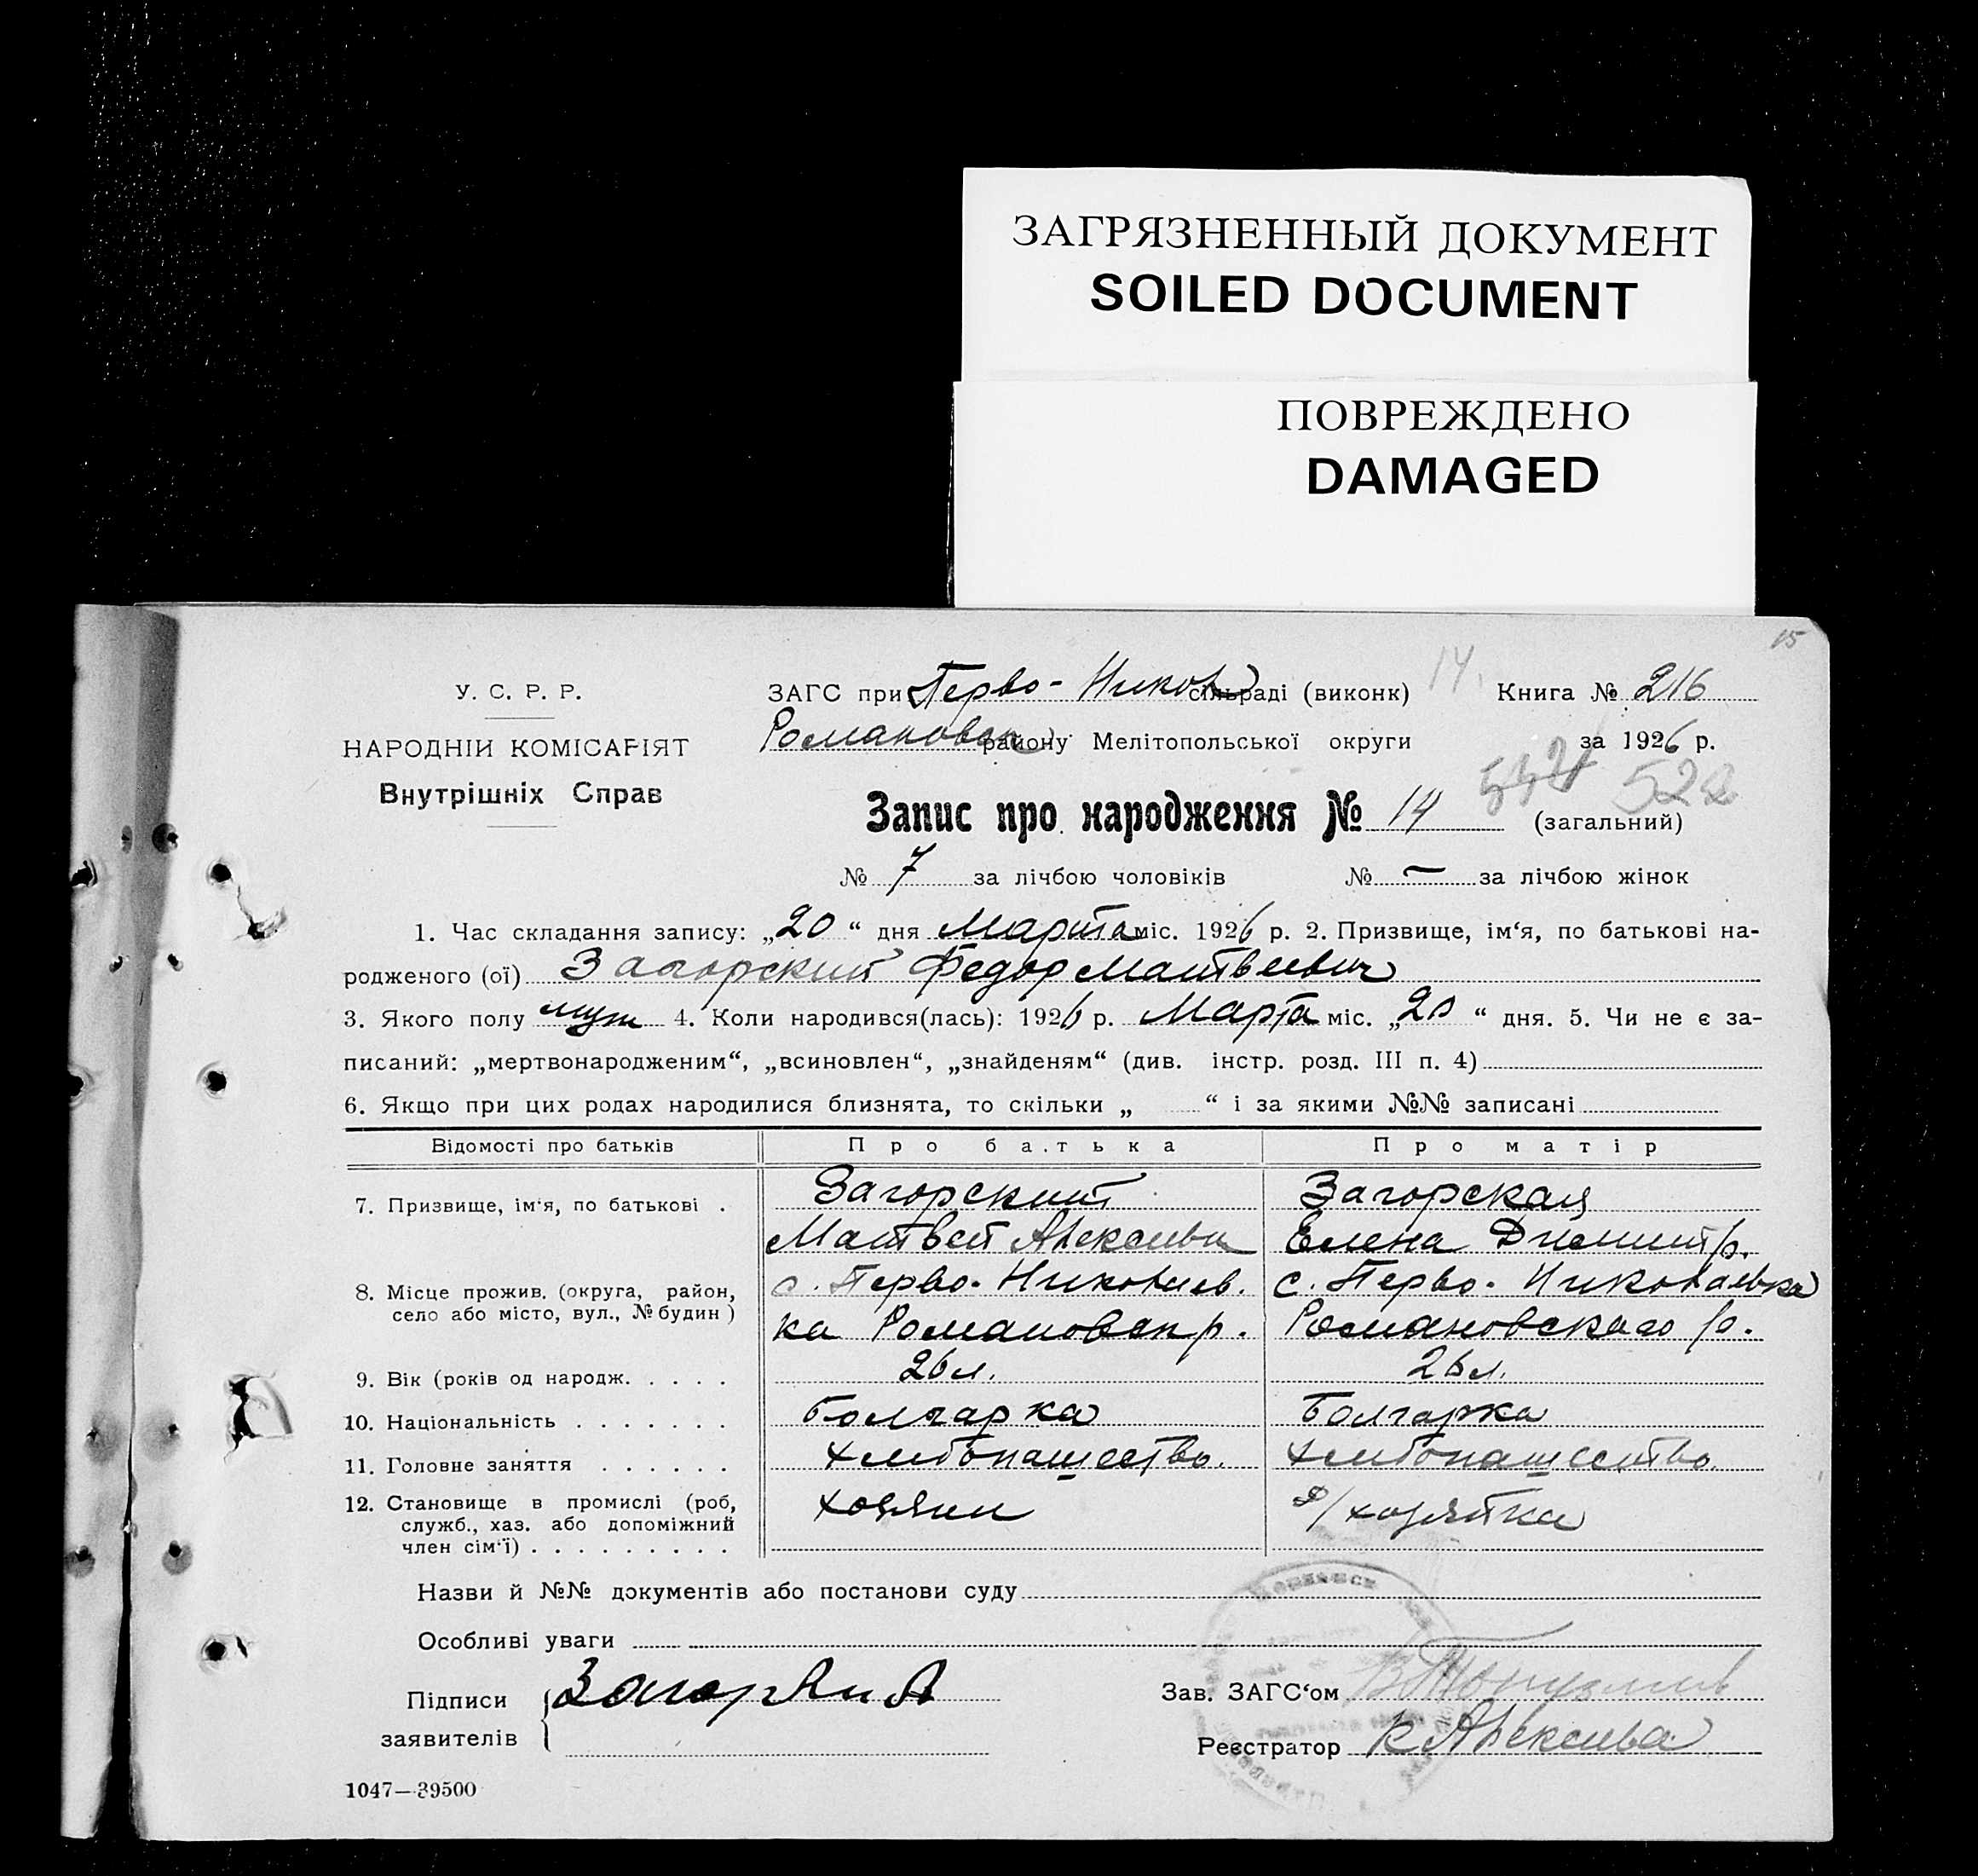 ЗАГРЯЗНЕННЫЙ ДОКУМЕНТ
SOILED DOCUMENT
ПОВРЕЖДЕНО
DAMAGED
15
У. С. Р. Р.
НАРОДНІЙ КОМІСАРІЯТ
Внутрішніх Справ
ЗАГС при Перво-Никол сільраді (виконк) 14. Книга № 216
Романовск району Мелітопольської округи за 1926 р.
522
Запис про народження № 14 (загальний)
№ 7 за лічбою чоловіків № — за лічбою жінок
1. Час складання запису: „20“ дня Марта міс. 1926 р. 2. Призвище, ім‘я, по батькові на-
родженого (ої) Загорский Федор Матвеевич
3. Якого полу муж 4. Коли народився(лась): 1926 р. Марта міс. „20“ дня. 5. Чи не є за-
писаний: „мертвонародженим“, „всиновлен“, „знайденям“ (див. інстр. розд. III п. 4)
6. Якщо при цих родах народилися близнята, то скільки „ “ і за якими №№ записані
Відомості про батьків Про батька Про матір
7. Призвище, ім‘я, по батькові . Загорский Загорская
Матвей Алексеев Елена Димитр.
8. Місце прожив. (округа, район, с. Перво-Николаев. с. Перво-Николаевка
село або місто, вул., № будин) ка Романовск р. Романовского р.
9. Вік (років од народж. . . . . 26 л. 26 л.
10. Національність . . . . . . . Болгарка Болгарка
11. Головне заняття . . . . . . хлебопашество. хлебопашество.
12. Становище в промислі (роб, хозяин д/хозяйка
служб., хаз. або допоміжний
член сім‘ї) . . . . . . . . .
Назви й №№ документів або постанови суду
Особливі уваги
Підписи
заявителів
Зав. ЗАГС‘ом
Реєстратор К Алексеева
1047—39500